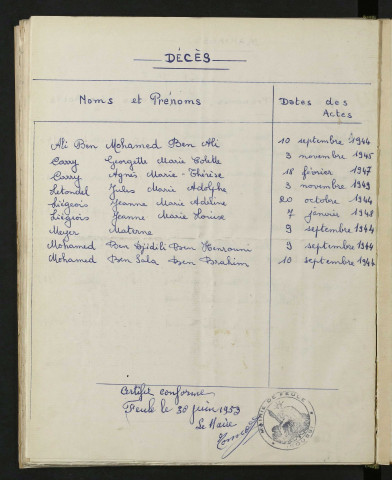 DÉCÈS
Noms et Prénoms Dates des Actes
Ali Ben Mohamed Ben Ali 10 septembre 1944
Carry Georgette Marie Colette 3 novembre 1945
Carry Agnès Marie-Thérèse 18 février 1947
Letondel Jules Marie Adolphe 3 novembre 1949
Liégeois Jeanne Marie Adeline 20 octobre 1944
Liégeois Jeanne Marie Louise 7 janvier 1948
Meyer Materne 9 septembre 1944
Mohamed Ben Djidili Ben 9 septembre 1944
Mohamed Ben Sala Ben Brahim 10 septembre 1944
Certifié conforme
Feule le 30 juin 1953
Le Maire
MAIRIE DE FEULE